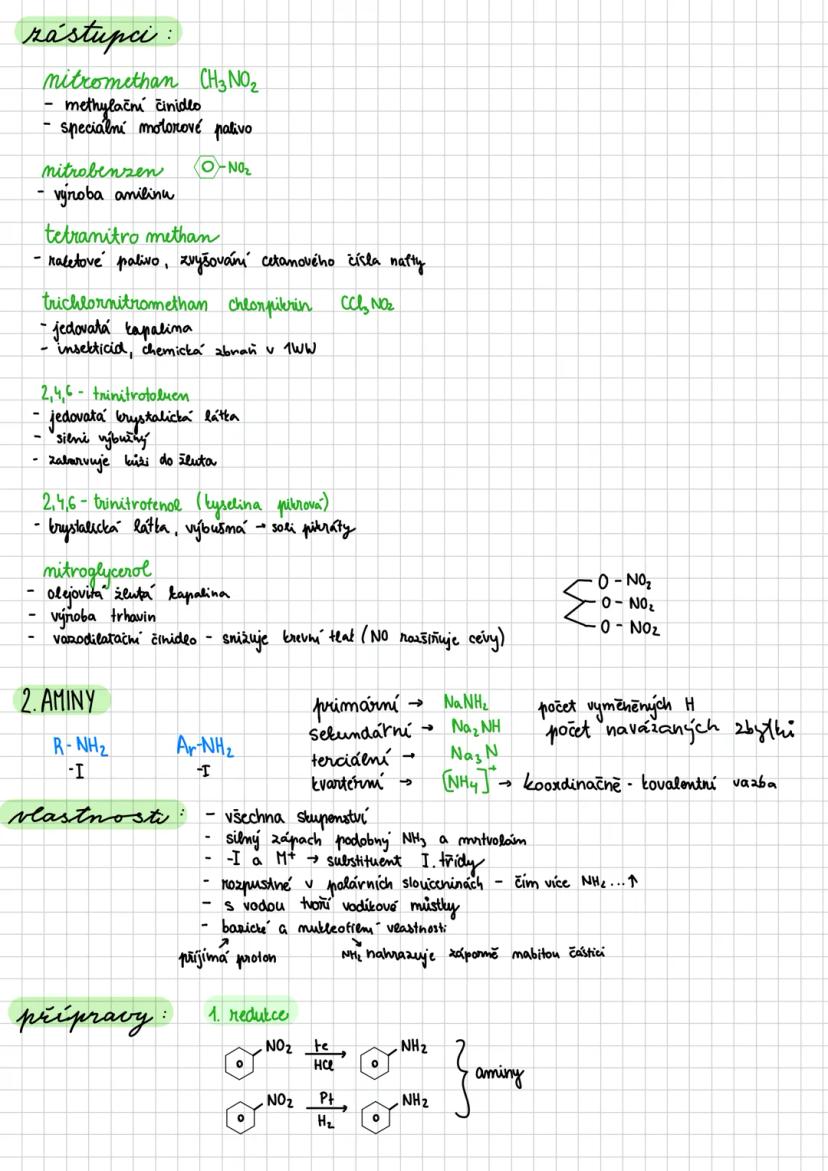 zástupci:
nitromethan CH₃NO₂
- methylační činidlo
- speciální motorové palivo
nitrobenzen -NO₂
- výroba anilinu
tetranitro methan
- raketové palivo, zvyšování cetanového čísla nafty
trichlornitromethan chlorpikrin CCl₃NO₂
- jedovatá kapalina
- insekticid, chemická zbraň v 1WW
2,4,6 - trinitrotoluen
- jedovatá krystalická látka
- silně výbušný
- zabarvuje kůži do žluta
2,4,6 - trinitrofenol (kyselina pikrová)
- krystalická látka, výbušná → soli pikráty
nitroglycerol
- olejovitá žlutá kapalina
- výroba trhavin
- vazodilatační činidlo - snižuje krevní tlak (NO rozšiřuje cévy)
O - NO₂
O - NO₂
O - NO₂
2. AMINY
R-NH₂ Ar-NH₂
-I -I
primární → NaNH₂ počet vyměněných H
sekundární → Na₂NH počet navázaných zbytků
terciální → Na₃N
kvartérní → [NH₄]⁺ → koordinačně - kovalentní vazba
vlastnosti:
- všechna skupenství
- silný zápach podobný NH₃ a mrtvolám
- -I a M+ → substituent I. třídy
- rozpustné v polárních sloučeninách - čím více NH₂...↑
- s vodou tvoří vodíkové můstky
- bazické a nukleofilní vlastnosti
přijímá proton NH₂ nahrazuje záporně nabitou částici
přípravy: 1. redukce
NO₂ Fe HCl NH₂
NO₂ Pt H₂ NH₂
aminy